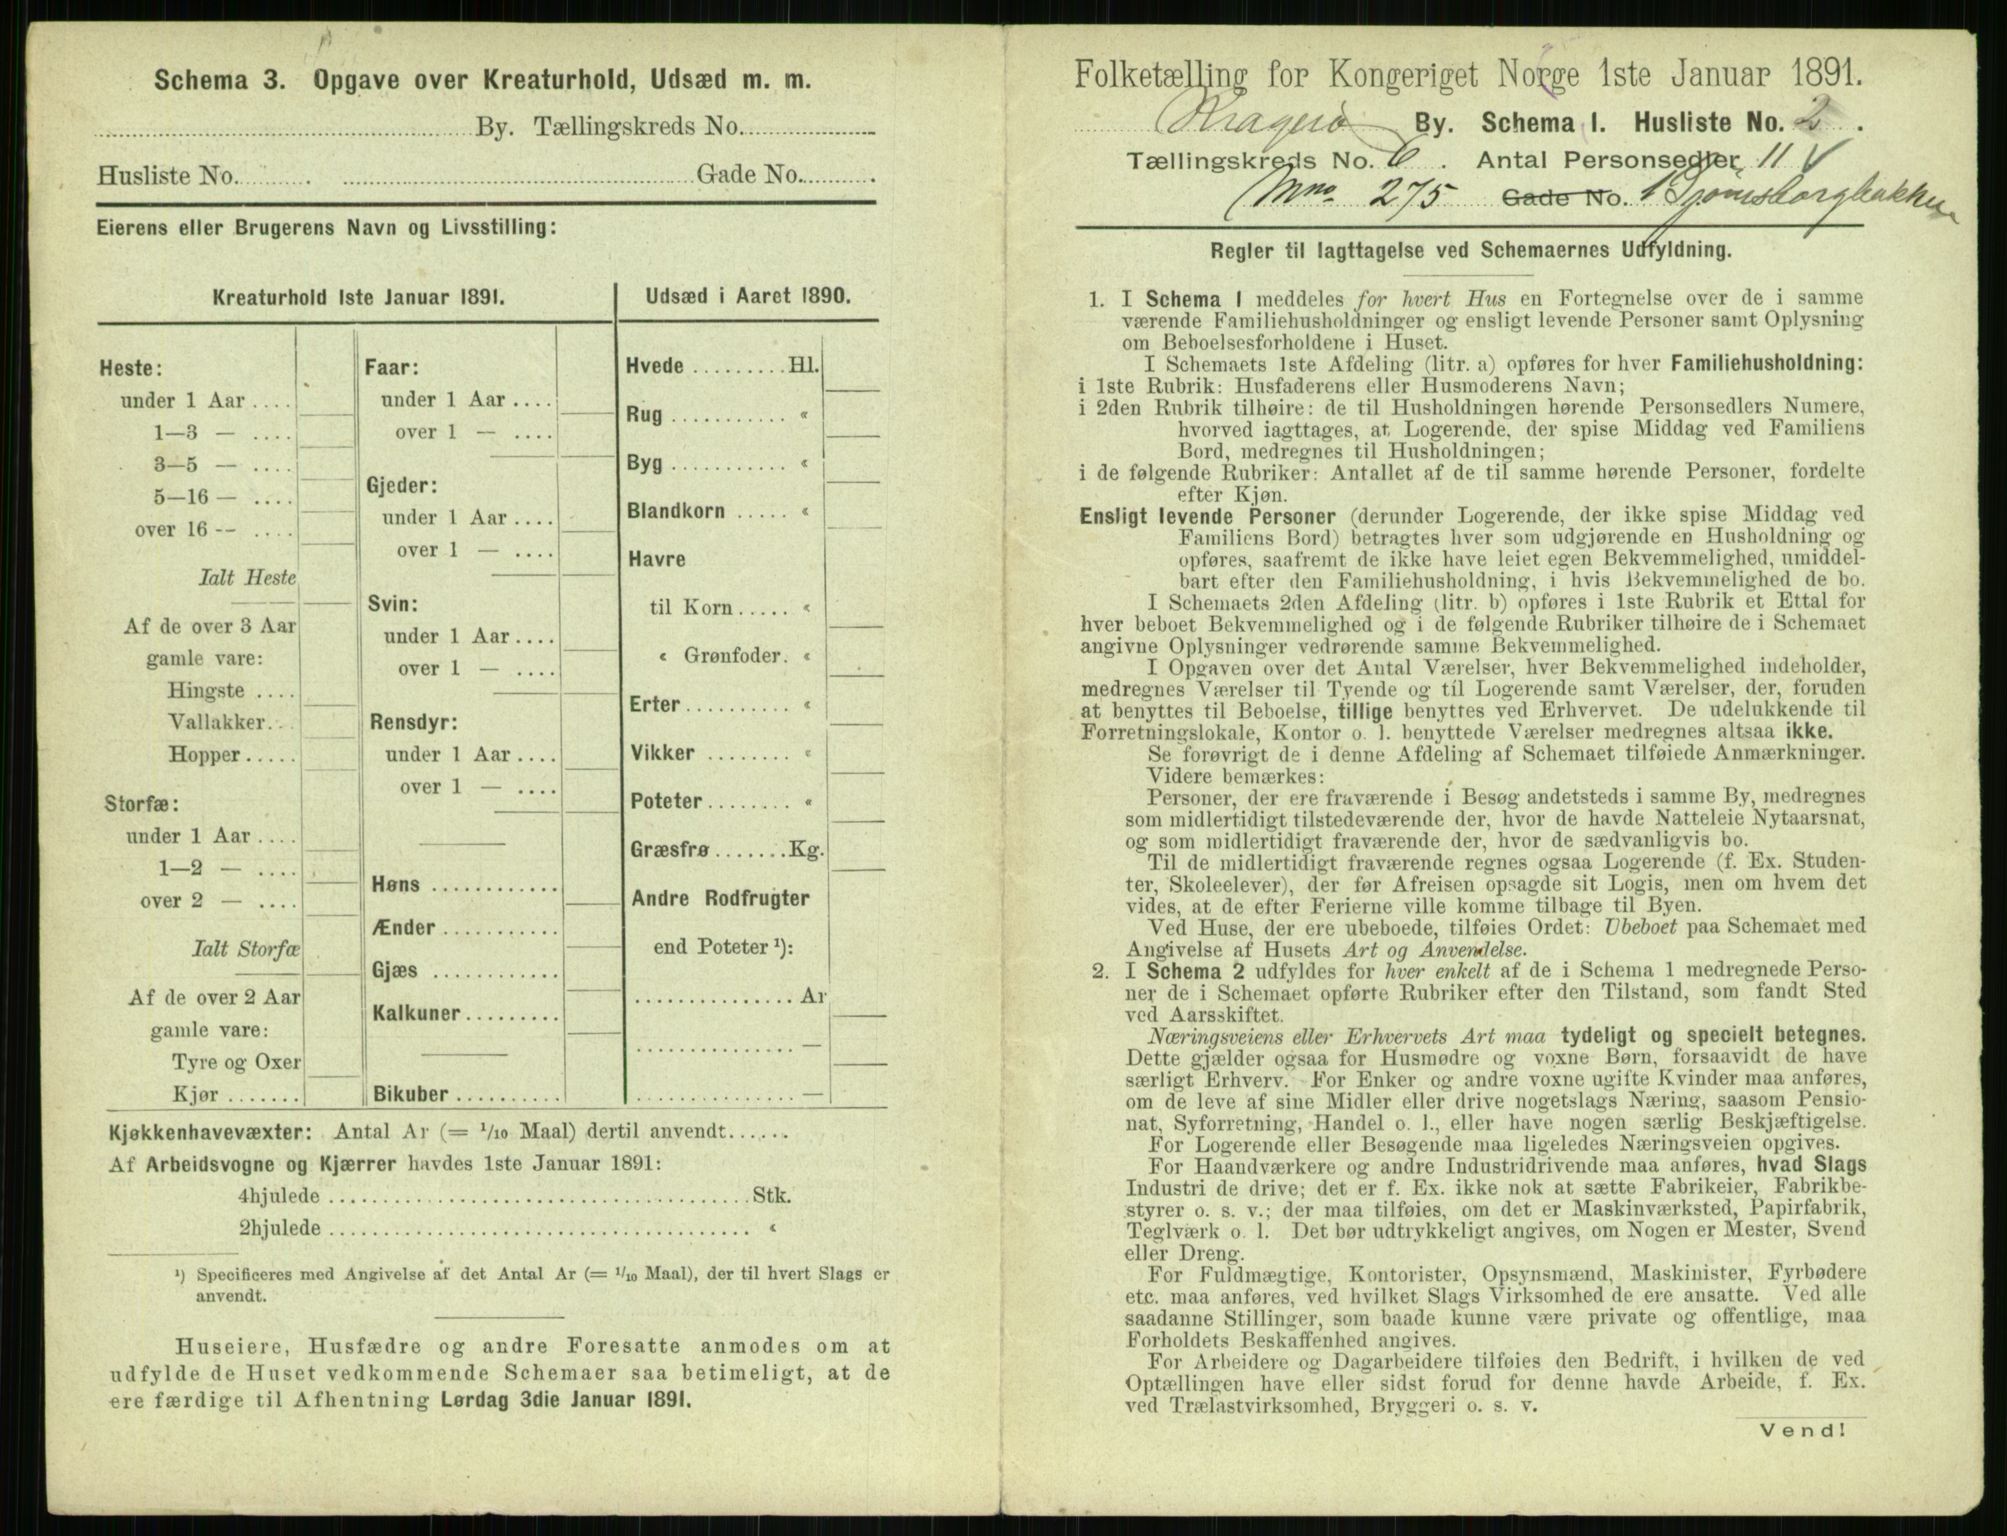 Schema 3. Opgave over Kreaturhold, Udsæd m. m.
By. Tællingskreds No.
Husliste No. Gade No.
Eierens eller Brugerens Navn og Livsstilling:
Kreaturhold 1ste Januar 1891.
Heste:
under 1 Aar ....
1—3 — ....
3—5 — ....
5—16 — ....
over 16 -- ....
Ialt Heste
Af de over 3 Aar
gamle vare:
Hingste ....
Vallakker..
Hopper.....
Storfæ:
under 1 Aar ....
1—2 — ....
over 2 — ....
Ialt Storfæ
Af de over 2 Aar
gamle vare:
Tyre og Oxer
Kjør .......
Faar:
under 1 Aar ....
over 1 — ....
Gjeder:
under 1 Aar ....
over 1 — ....
Svin:
under 1 Aar ....
over 1 — ....
Rensdyr:
under 1 Aar ....
over 1 — ....
Høns ............
Ænder ...........
Gjæs ............
Kalkuner.........
Bikuber ..........
Udsæd i Aaret 1890.
Hvede ......... Hl.
Rug ........... «
Byg ........... «
Blandkorn ..... «
Havre
til Korn ..... «
« Grønfoder. «
Erter.......... «
Vikker ........ «
Poteter........ «
Græsfrø.......Kg.
Andre Rodfrugter
end Poteter ¹):
............... Ar
............... —
............... —
Kjøkkenhavevæxter: Antal Ar (= 1/10 Maal) dertil anvendt......
Af Arbeidsvogne og Kjærrer havdes 1ste Januar 1891:
4hjulede ........................................ Stk.
2hjulede ........................................ «
¹) Specificeres med Angivelse af det Antal Ar (= 1/10 Maal), der til hvert Slags er
anvendt.
Huseiere, Husfædre og andre Foresatte anmodes om at
udfylde de Huset vedkommende Schemaer saa betimeligt, at de
ere færdige til Afhentning Lørdag 3die Januar 1891.
Folketælling for Kongeriget Norge 1ste Januar 1891.
Kragerø By. Schema 1. Husliste No. 2.
Tællingskreds No. 6. Antal Personsedler 11
Mno 275 Gade No.
Regler til Iagttagelse ved Schemaernes Udfyldning.
1. I Schema 1 meddeles for hvert Hus en Fortegnelse over de i samme
værende Familiehusholdninger og ensligt levende Personer samt Oplysning
om Beboelsesforholdene i Huset.
I Schemaets 1ste Afdeling (litr. a) opføres for hver Familiehusholdning:
i 1ste Rubrik: Husfaderens eller Husmoderens Navn;
i 2den Rubrik tilhøire: de til Husholdningen hørende Personsedlers Numere,
hvorved iagttages, at Logerende, der spise Middag ved Familiens
Bord, medregnes til Husholdningen;
i de følgende Rubriker: Antallet af de til samme hørende Personer, fordelte
efter Kjøn.
Ensligt levende Personer (derunder Logerende, der ikke spise Middag ved
Familiens Bord) betragtes hver som udgjørende en Husholdning og
opføres, saafremt de ikke have leiet egen Bekvemmelighed, umiddel-
bart efter den Familiehusholdning, i hvis Bekvemmelighed de bo.
I Schemaets 2den Afdeling (litr. b) opføres i 1ste Rubrik et Ettal for
hver beboet Bekvemmelighed og i de følgende Rubriker tilhøire de i Schemaet
angivne Oplysninger vedrørende samme Bekvemmelighed.
I Opgaven over det Antal Værelser, hver Bekvemmelighed indeholder,
medregnes Værelser til Tyende og til Logerende samt Værelser, der, foruden
at benyttes til Beboelse, tillige benyttes ved Erhvervet. De udelukkende til
Forretningslokale, Kontor o. l. benyttede Værelser medregnes altsaa ikke.
Se forøvrigt de i denne Afdeling af Schemaet tilføiede Anmærkninger.
Videre bemærkes:
Personer, der ere fraværende i Besøg andetsteds i samme By, medregnes
som midlertidigt tilstedeværende der, hvor de havde Natteleie Nytaarsnat,
og som midlertidigt fraværende der, hvor de sædvanligvis bo.
Til de midlertidigt fraværende regnes ogsaa Logerende (f. Ex. Studen-
ter, Skoleelever), der før Afreisen opsagde sit Logis, men om hvem det
vides, at de efter Ferierne ville komme tilbage til Byen.
Ved Huse, der ere ubeboede, tilføies Ordet: Ubeboet paa Schemaet med
Angivelse af Husets Art og Anvendelse.
2. I Schema 2 udfyldes for hver enkelt af de i Schema 1 medregnede Perso-
ner de i Schemaet opførte Rubriker efter den Tilstand, som fandt Sted
ved Aarsskiftet.
Næringsveiens eller Erhvervets Art maa tydeligt og specielt betegnes.
Dette gjælder ogsaa for Husmødre og voxne Børn, forsaavidt de have
særligt Erhverv. For Enker og andre voxne ugifte Kvinder maa anføres,
om de leve af sine Midler eller drive nogetslags Næring, saasom Pensio-
nat, Syforretning, Handel o. l., eller have nogen særlig Beskjæftigelse.
For Logerende eller Besøgende maa ligeledes Næringsveien opgives.
For Haandværkere og andre Industridrivende maa anføres, hvad Slags
Industri de drive; det er f. Ex. ikke nok at sætte Fabrikeier, Fabrikbe-
styrer o. s. v.; der maa tilføies, om det er Maskinværksted, Papirfabrik,
Teglværk o. l. Det bør udtrykkeligt angives, om Nogen er Mester, Svend
eller Dreng.
For Fuldmægtige, Kontorister, Opsynsmænd, Maskinister, Fyrbødere
etc. maa anføres, ved hvilket Slags Virksomhed de ere ansatte. Ved alle
saadanne Stillinger, som baade kunne være private og offentlige, maa
Forholdets Beskaffenhed angives.
For Arbeidere og Dagarbeidere tilføies den Bedrift, i hvilken de ved
Optællingen have eller sidst forud for denne havde Arbeide, f. Ex.
ved Trælastvirksomhed, Bryggeri o. s. v.
Vend!